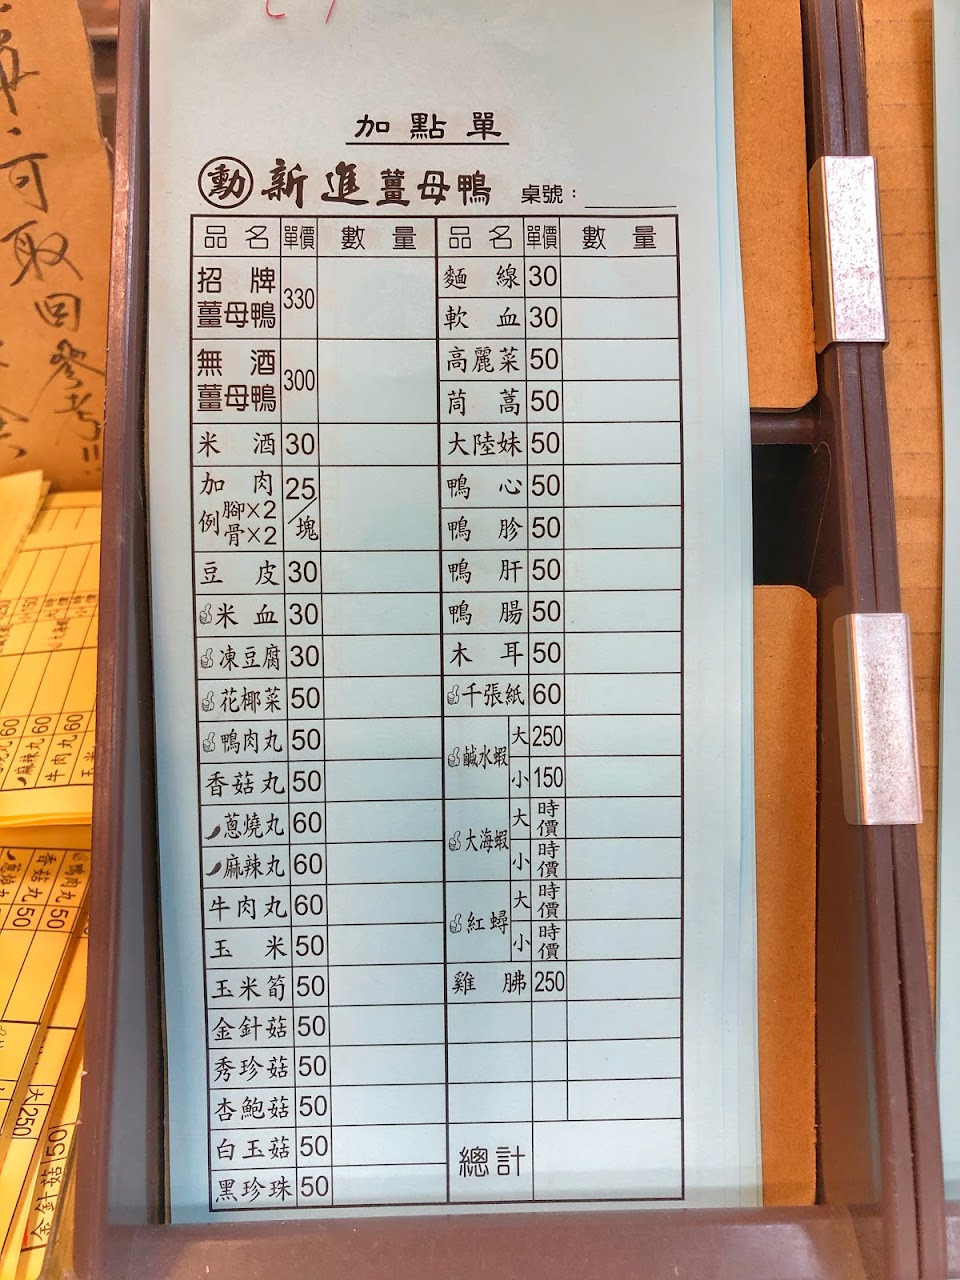 加點單
勳 新進薑母鴨 桌號：
品名 單價 數量 品名 單價 數量
招牌薑母鴨 330
無酒薑母鴨 300
米酒 30
加肉 例 腳×2 骨×2 25/塊
豆皮 30
米血 30
凍豆腐 30
花椰菜 50
鴨肉丸 50
香菇丸 50
蔥燒丸 60
麻辣丸 60
牛肉丸 60
玉米 50
玉米筍 50
金針菇 50
秀珍菇 50
杏鮑菇 50
白玉菇 50
黑珍珠 50
麵線 30
軟血 30
高麗菜 50
茼蒿 50
大陸妹 50
鴨心 50
鴨胗 50
鴨肝 50
鴨腸 50
木耳 50
千張紙 60
鹹水蝦 大 250
小 150
大海蝦 大 時價
小 時價
紅蟳 大 時價
小 時價
雞胇 250
總計
可取
回參考!!!
麻辣丸 60
牛肉丸 60
鴨肉丸 50
香菇丸 50
大 250